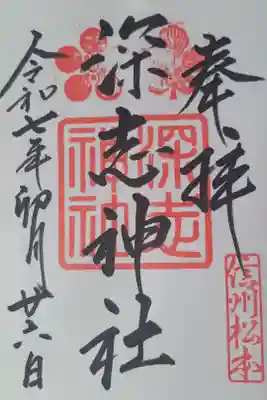 奉拝
信州松本
深志神社
深志
神社
令和七年卯月廿六日